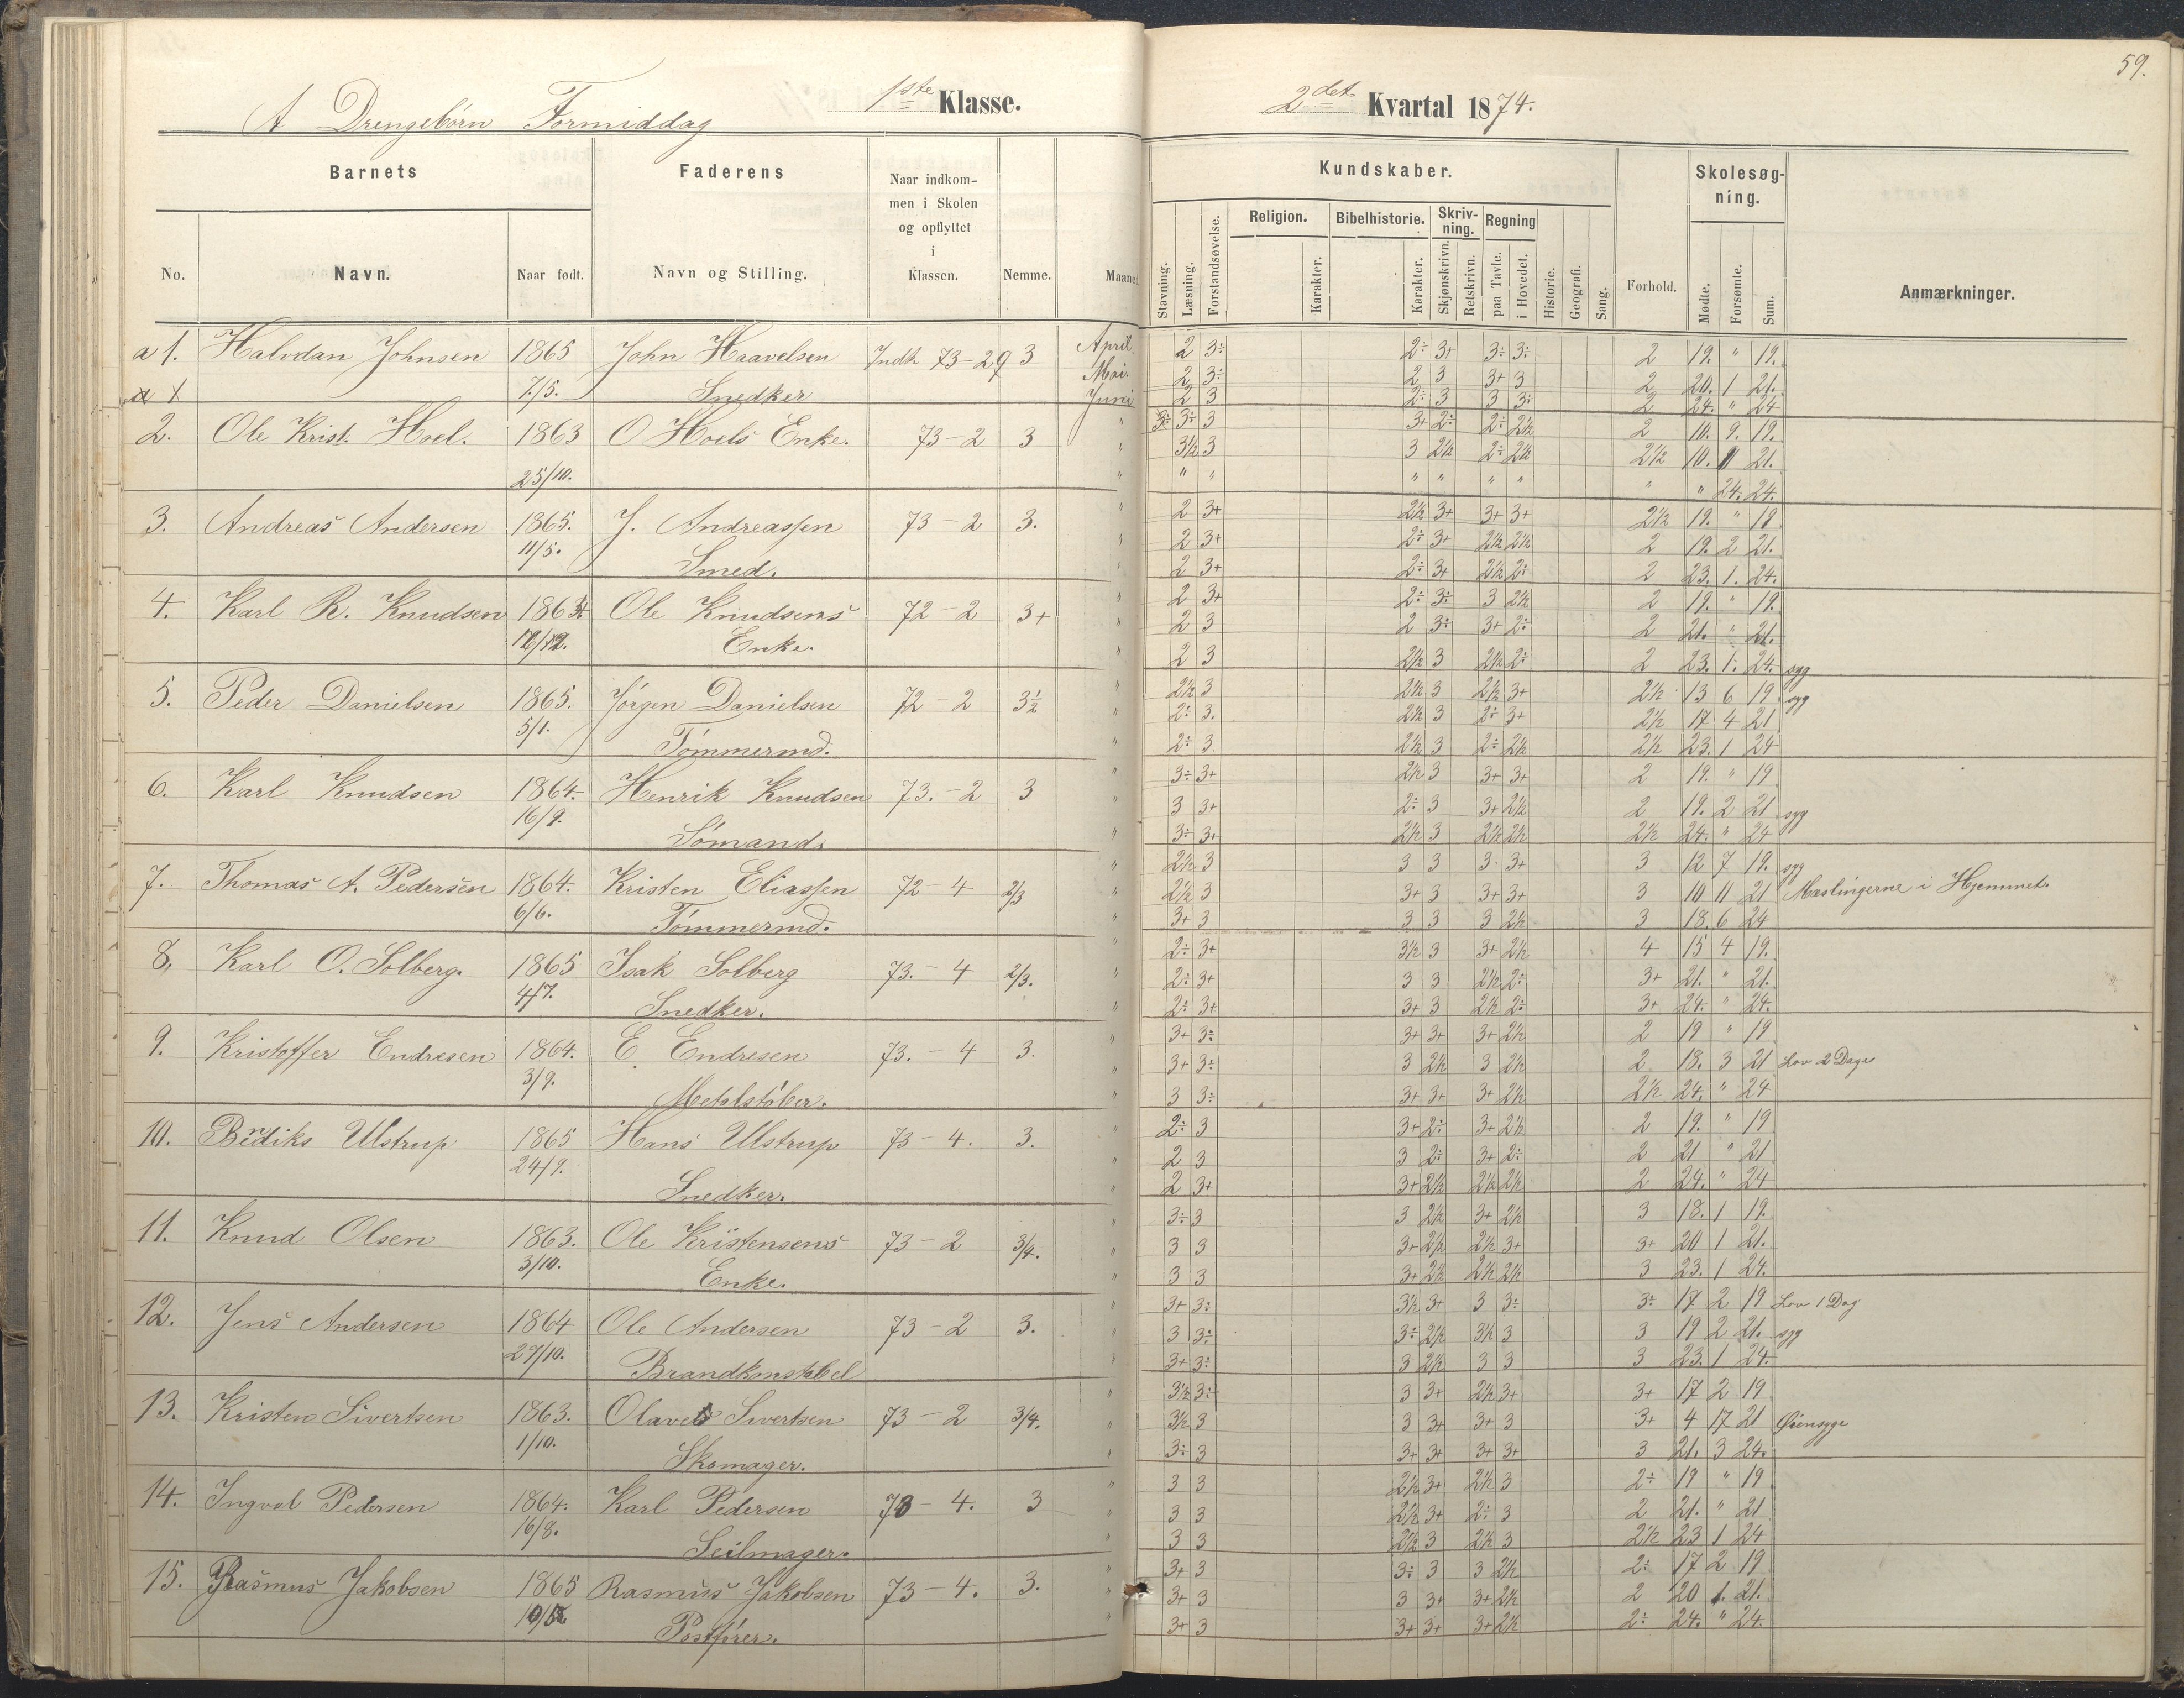 59.
A Drengebørn Formiddag 1ste Klasse. 2det Kvartal 1874.
Barnets Faderens Naar indkommen i Skolen og opflyttet i Klassen. Nemme. Maaned
No. Navn. Naar født. Navn og Stilling.
Kundskaber. Skolesøgning.
Stavning. Læsning. Forstandsøvelse. Religion. Karakter. Bibelhistorie. Karakter. Skrivning. Skjønskrivn. Retskrivn. Regning paa Tavle. i Hovedet. Historie. Geografi. Sang. Forhold. Mødte. Forsømte. Sum. Anmærkninger.
a 1. Halvdan Johnsen 1865 John Haavelsen Indk 73-29 3 April 2 3÷ 2÷ 3+ 3÷ 3÷ 2 19. " 19.
7/5. Snedker Mai. 2 3÷ 2 3 3+ 3 2 20. 1 21.
Juni 2 3 2÷ 3 3 3÷ 2 24. " 24
2. Ole Krist. Hoel. 1863 O Hoels Enke. 73-2 3 " 3÷ 3÷ 3 3+ 2÷ 2÷ 2½ 2 10. 9. 19.
25/10. " 3½ 3 3 2½ 2÷ 2½ 2½ 10. 11 21.
" " " " " " " " " 24. 24.
3. Andreas Andersen 1865. J. Andreassen 73-2 3. " 2 3+ 2½ 3+ 3+ 3+ 2½ 19. " 19
11/5. Smed. " 2 3+ 2÷ 3+ 2½ 2½ 2 19. 2 21.
" 2 3+ 2÷ 3+ 2½ 2÷ 2 23. 1. 24.
4. Karl R. Knudsen Ole Knudsens 72-2 3+ " 2 3+ 2÷ 3÷ 3 2½ 2 19. " 19.
Enke. " 2 3 2 3÷ 3+ 2÷ 2 21. " 21.
" 2 3 2½ 3 2½ 2÷ 2 23. 1. 24. syg
5. Peder Danielsen 1865. Jørgen Danielsen 72-2 3½ " 2½ 3 2½ 3 2½ 3+ 2½ 13 6 19. syg
5/1. Tømmermd. " 2÷ 3. 2½ 3 2÷ 3+ 2½ 17 4 21
" 2÷ 3. 2½ 3 2÷ 2½ 2½ 23. 1 24
6. Karl Knudsen 1864. Henrik Knudsen 73.-2 3 " 3÷ 3+ 2½ 3 3+ 3+ 2 19. " 19
16/9. Sømand. " 3 3+ 2÷ 3 3+ 2½ 2 19. 2 21 syg
" 3÷ 3+ 2½ 3 2½ 2½ 2½ 24. " 24
7. Thomas A. Pedersen 1864. Kristen Eliassen 72-4 2/3 " 2½ 3 3 3 3 3+ 3 12 7 19. syg
6/6. Tømmermd. " 2½ 3 3+ 3 3+ 3+ 3 10 11 21 Mæslingerne i Hjemmet.
" 3+ 3 3 3 3 2½ 3 18. 6 24
8. Karl O. Solberg. 1865 Isak Solberg 73.-4 2/3. " 2÷ 3+ 3½ 3 3+ 2½ 4 15 4 19.
4/7. Snedker. " 2÷ 3+ 3 3 2½ 2÷ 3+ 21. " 21.
" 2÷ 3+ 3+ 3 2½ 2÷ 3+ 24. " 24.
9. Kristoffer Endresen 1864. E. Endresen 73.-4 3. " 3+ 3÷ 3+ 3+ 3+ 2½ 2 19 " 19
3/9. Metalstøber. " 3+ 3÷ 3 2½ 3 2½ 2 18. 3 21 Lov 2 Dage
" 3 3÷ 3+ 3+ 3+ 2½ 2½ 24. " 24
10. Bendiks Ulstrup 1865 Hans Ulstrup 73-4. 3. " 2÷ 3 3+ 2÷ 3+ 2½ 2 19. " 19
24/9. Snedker. " 2 3 3 2÷ 3+ 2÷ 2 21 " 21
" 2 3+ 3+ 2½ 2½ 2½ 2 24. " 24
11. Knud Olsen 1863. Ole Kristensens 73-2 3/4. " 3÷ 3 3 2½ 3+ 2½ 3 18. 1 19.
3/10. Enke. " 3 3 3+ 2½ 2½ 3+ 3+ 20 1 21.
" 3 3 3+ 2½ 2½ 2½ 3 23. 1 24.
12. Jens Andersen 1864 Ole Andersen 73-2 3. " 3+ 3÷ 3½ 3+ 3 3÷ 3÷ 17 2 19 Lov 1 Dag
27/10. Brandkonstabel " 3 3÷ 3÷ 2½ 3½ 3 3 19 2 21. syg
" 3+ 3÷ 3 2½ 3 3 3 23. 1 24.
13. Kristen Sivertsen 1863. Olaves Sivertsen 73-2 3/4. " 3½ 3÷ 3 3+ 2½ 3+ 3+ 17 2 19
1/10. Skomager. " 3½ 3 3 3+ 3+ 3 3+ 4 17 21 Øiensyge
" 3÷ 3 3+ 3+ 3+ 3+ 3 21. 3 24.
14. Ingvol Pedersen 1864. Karl Pedersen 73-4. 3 " 3 3 2½ 3+ 2½ 3 2÷ 19 " 19
16/8. Seilmager. " 3 3 2½ 3+ 2÷ 3 2 21. " 21
" 3 3 2½ 3 2½ 3 2½ 23 1 24
15. Rasmus Jakobsen 1865 Rasmus Jakobsen 73-4. 3. " 3+ 3 3÷ 3 3 2½ 2÷ 17 2 19
Postfører. " 3+ 3 3 3+ 3+ 2½ 2 20 1. 21.
" 3+ 3 3+ 3+ 3+ 2½ 2÷ 24. " 24.